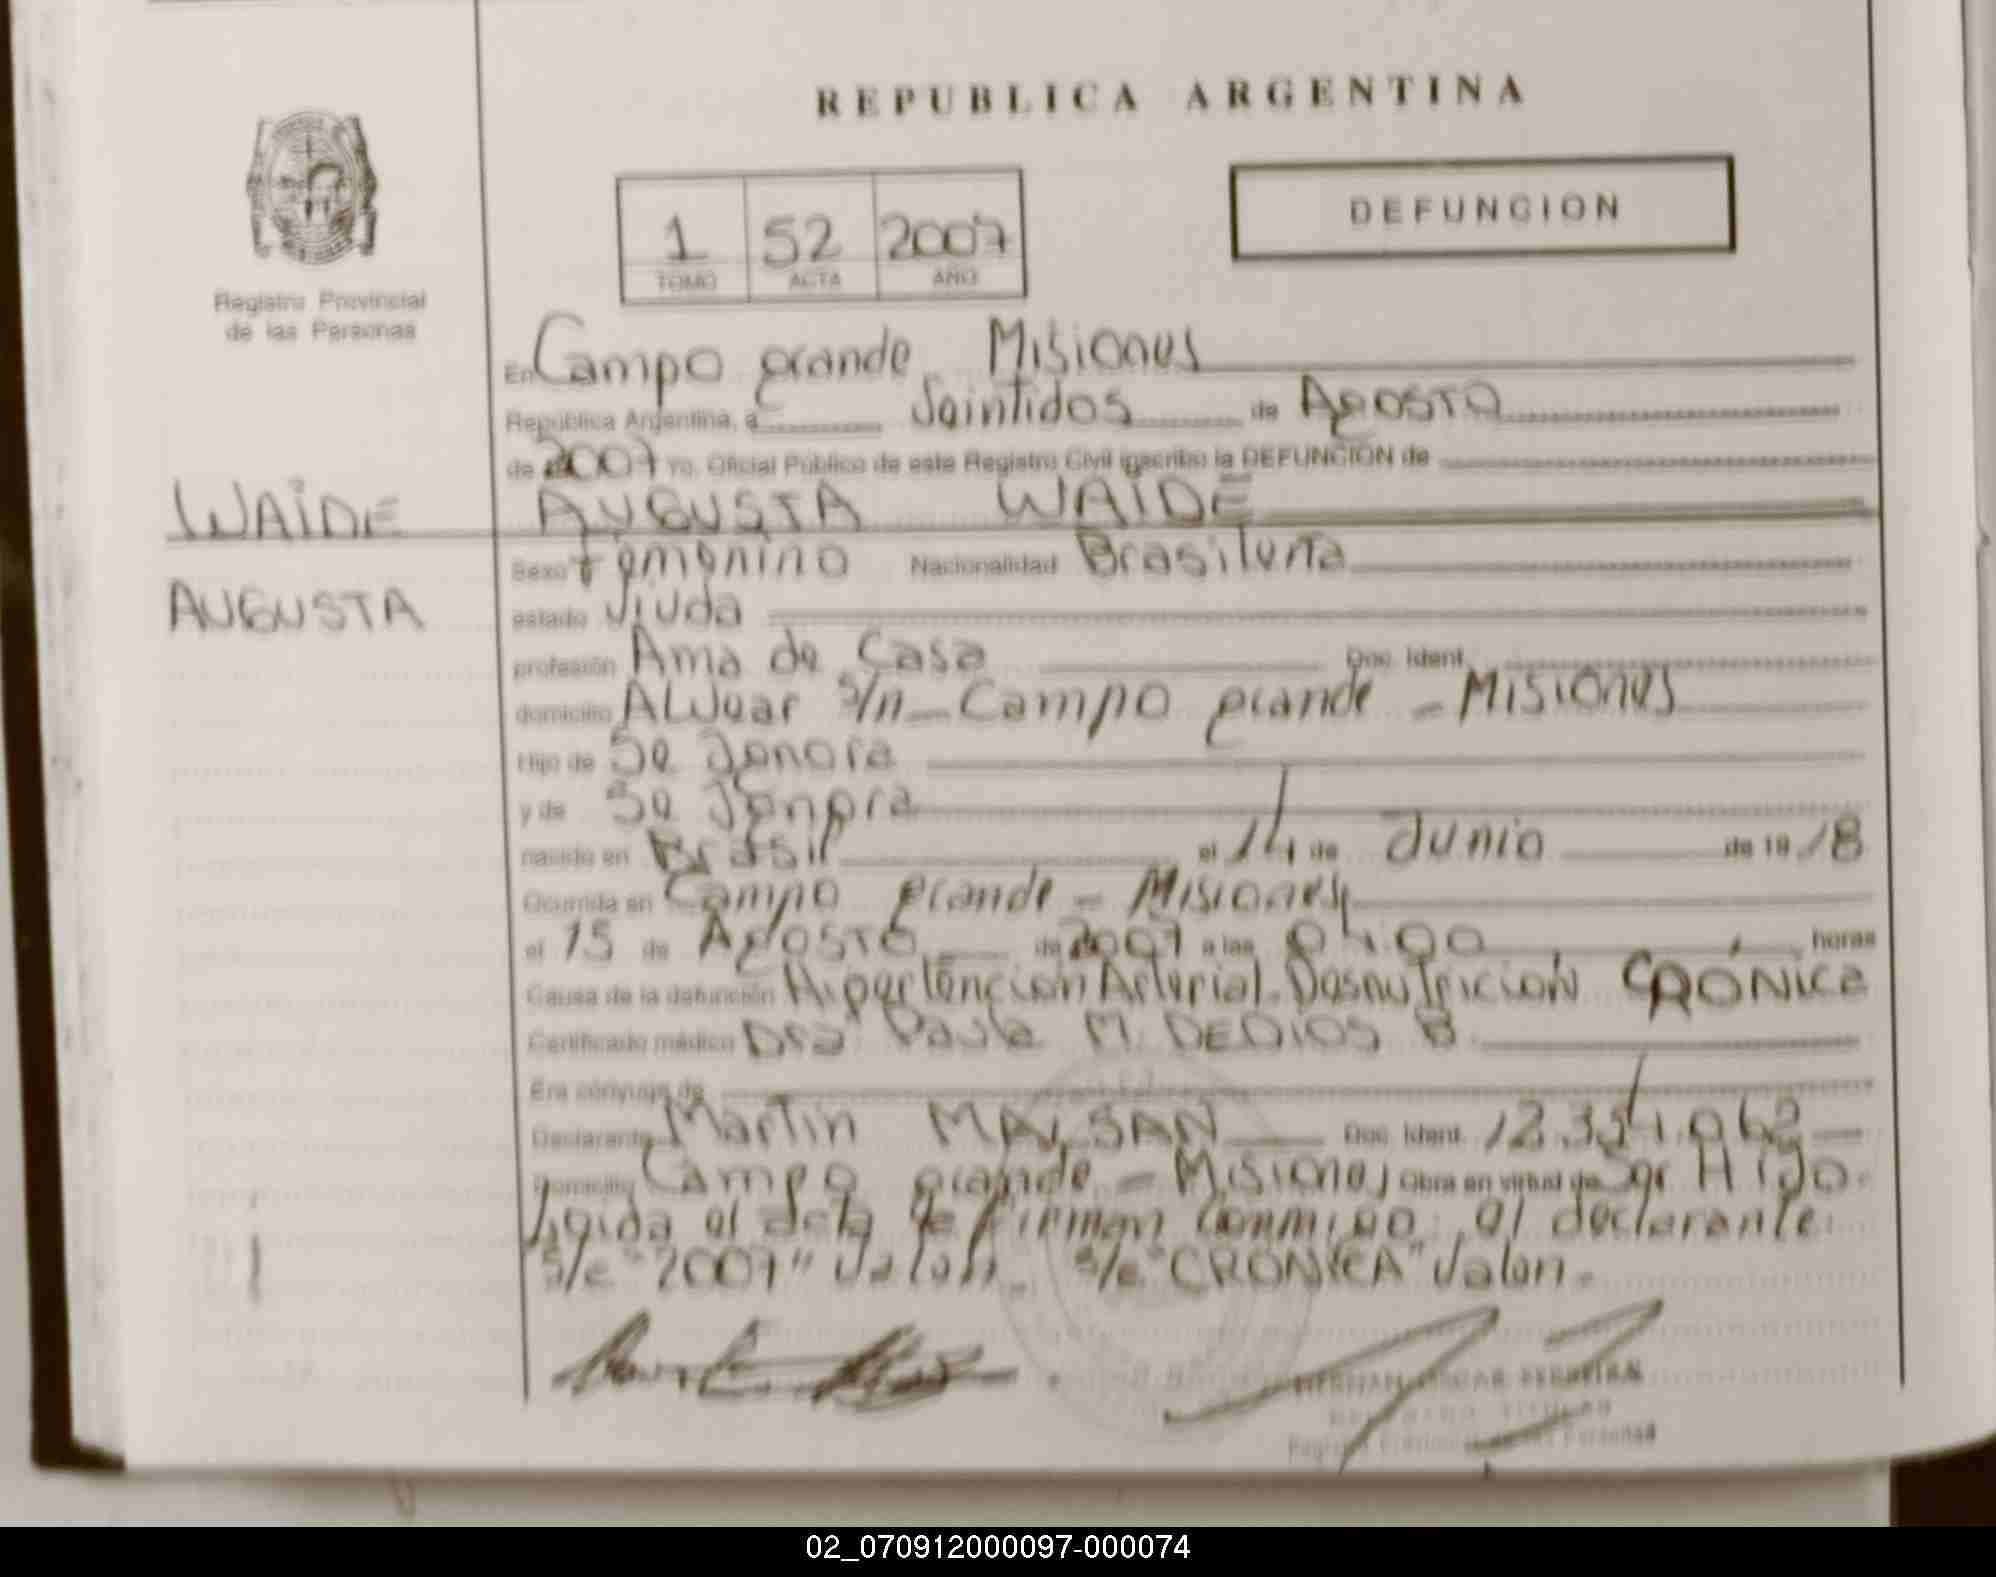 REPUBLICA ARGENTINA
DEFUNCION
1 52 2007
TOMO ACTA AÑO
Registro Provincial
de las Personas
En Campo grande Misiones
República Argentina, a Veintidos de Agosto
de 2007 Yo, Oficial Público de este Registro Civil inscribo la DEFUNCION de
WAIDE AUGUSTA WAIDE
AUGUSTA
Sexo Femenino Nacionalidad Brasileña
estado Viuda
profesión Ama de Casa Doc. Ident.
domicilio Alvear s/n - Campo grande - Misiones
Hijo de Se Ignora
y de Se Ignora
nacido en Brasil el 14 de Junio de 19 18
Ocurrida en Campo grande - Misiones
el 15 de Agosto de 2007 a las 04,00 horas
Causa de la defunción Hipertención Arterial. Desnutrición CRÓNICA
Certificado médico Dra Paula M. DEDIOS B.
Era cónyuge de
Declarante Martin Doc. Ident. 12.354.062
Domicilio Campo grande - Misiones Obra en virtud de Ser Hijo.
Leida el acta la firman Conmigo, el declarante
S/e "2007" Valen. S/e "CRÓNICA" Valen.
02_070912000097-000074